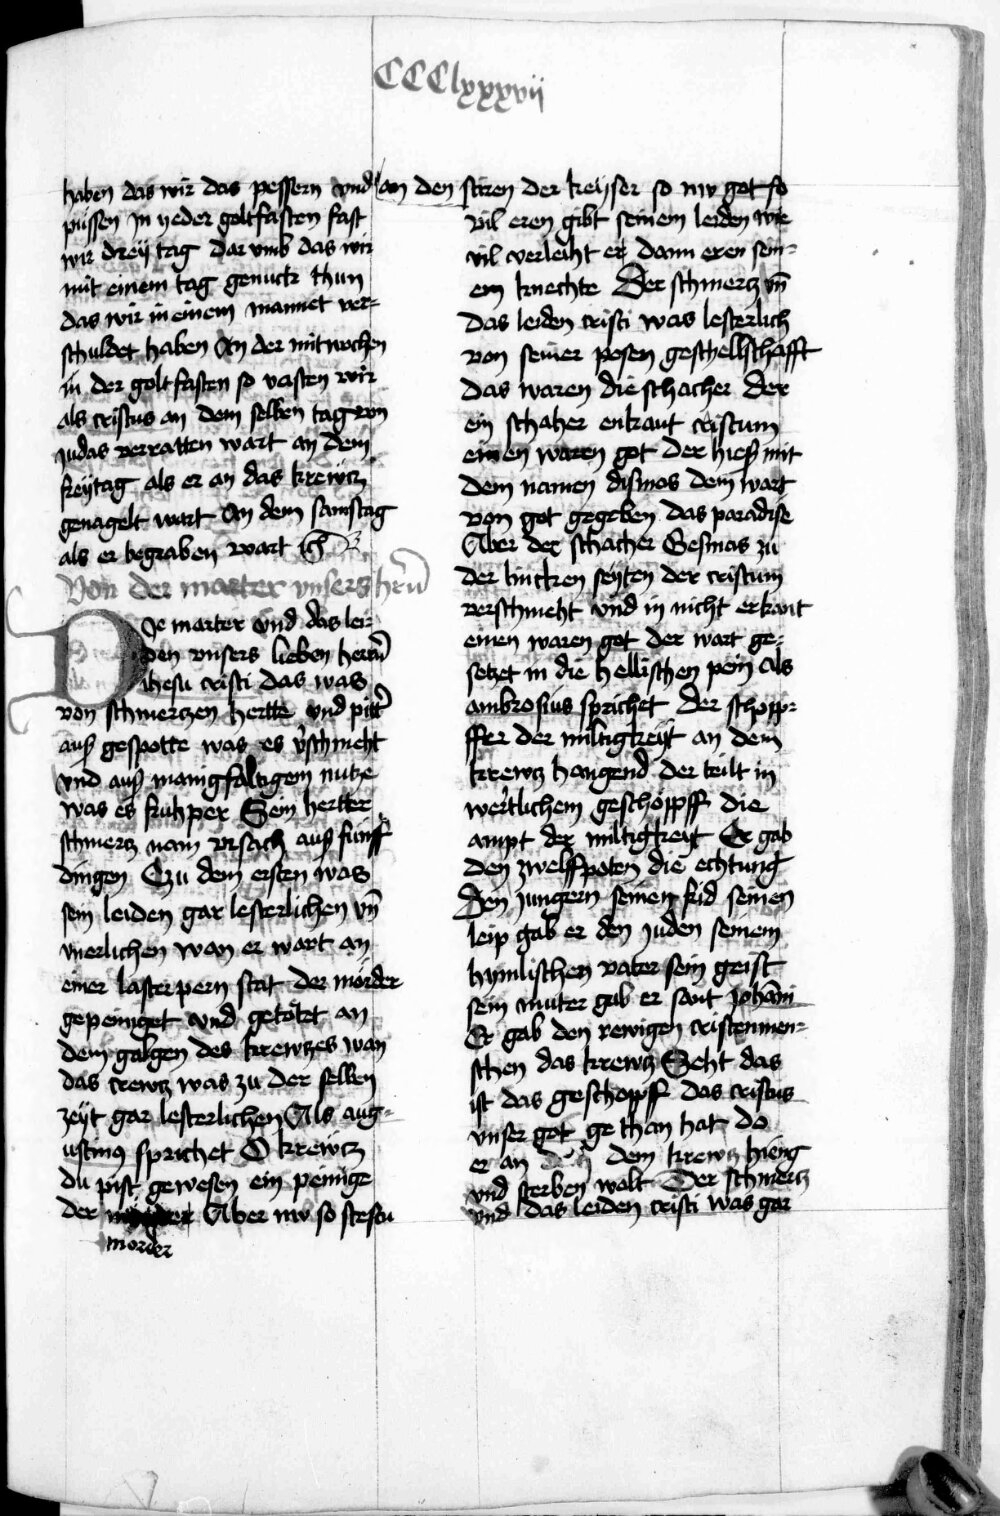 CCClxxxvii
haben das wir das pessern vnd
püssen In yeder goltfasten fast
wir dreÿ tag Dar vmb das wir
mit einem tag genuck thun
das wir in einem mannet ver-
schuldet haben An der mitwochen
in der goltfasten so vasten wir
als cristus an dem selben tag von
Judas verratten wart an dem
freÿtag als er an das krewcz
genagelt wart An dem samstag
als er begraben wart
Von der marter vnsers hr̄n
DJe marter vnd das lei-
den vnsers lieben herrn̄
ihesu cristi das was
von schmerczen hertte vnd pitt̄
auß gespotte was es v̄schmeht
vnd auß manigfaltigem nutze
was es fruhper Sein hertter
schmercz nam vrsach auß fünff
dingen Czu dem ersten was
sein leiden gar lesterlichen vn̄
vnerlichen wan er wart an
einer lasterpern stat der mörder
gepeiniget vnd getötet an
dem galgen des krewtzes wan
das crewcz was zu der selben
zeÿt gar lesterlichen Als aug-
ustinꝰ sprichet O krewcz
du pist gewesen ein peinige
der Aber nw so stestu
morder
an den stiren der keÿser so nw got so
vil eren gibt seinem leiden wie
vil verleiht er dann eren sein-
em knechte Der schmercz vn̄
das leiden cristi was lesterlich
von seiner posen geschellschafft
das waren die schacher der
ein schaher enkant cristum
einen waren got der hieß mit
dem namen dismos dem wart
von got gegeben das paradise
Aber der schacher Gesmas zu
der lincken seÿten der cristum
verschmeht vnd in nicht erkant
einen waren got der wart ge-
setzet in die hellischen pein Als
ambrosius sprichet Der schopp-
ffer der miltigkeÿt an dem
krewcz hangend der teilt in
wertlichem geschöpff die
ampt der miltigkeit Er gab
den zwelffpoten die echtung
Den jungern seinen frid seinen
leip gab er den juden seinem
hymlischen vater sein geist
sein muter gab er sant Johān̄i
Er gab den rewigen cristenmen-
schen das krewcz Seht das
ist das geschopff das cristus
vnser got gethan hat do
er an dem krewcz hieng
vnd sterben wolt Der schmercz
vnd das leiden cristi was gar